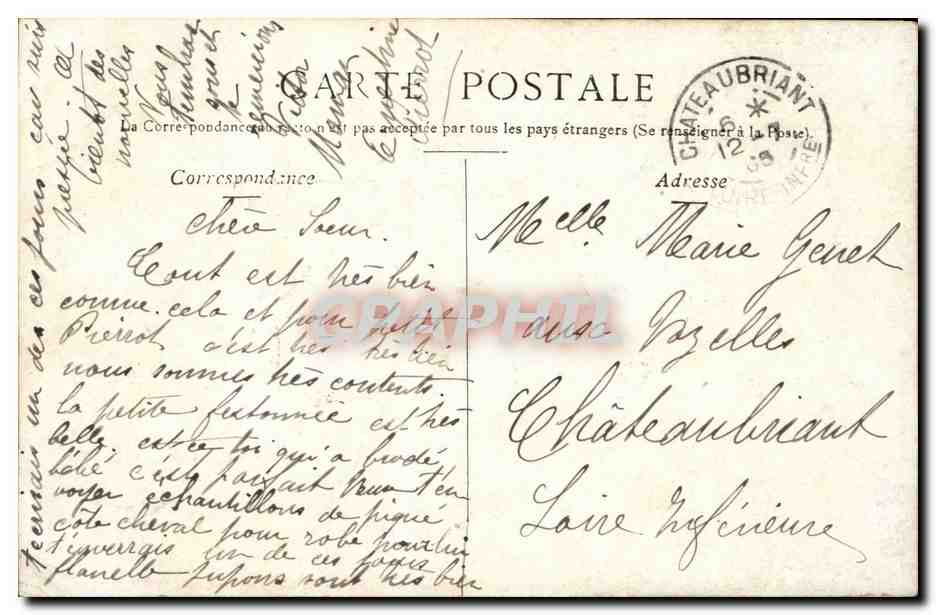 CARTE POSTALE
La Correspondance au recto n'est pas acceptée par tous les pays étrangers (Se renseigner à la Poste).
Correspondance
Adresse
CHATEAUBRIANT
6
12
08
LOIRE INFRE
Chère Soeur.
Tout est très bien
comme cela et pour petit
Pierrot c'est très très bien
nous sommes très contents.
la petite festonnée est très
belle est ce toi qui a brodé
bébé c'est parfait veux t'en
voyer échantillons de piqué
côte cheval pour robe pour lui
t'enverrais un de ces jours
flanelle jupons sont très bien
t'écrirais un de ces jours car suis
pressée et
bientôt des
nouvelles
Vous
embras
Victor
Pierrot
Melle Marie Genet
aux Vozelles
Châteaubriant
Loire Inférieure
CPAPHTL